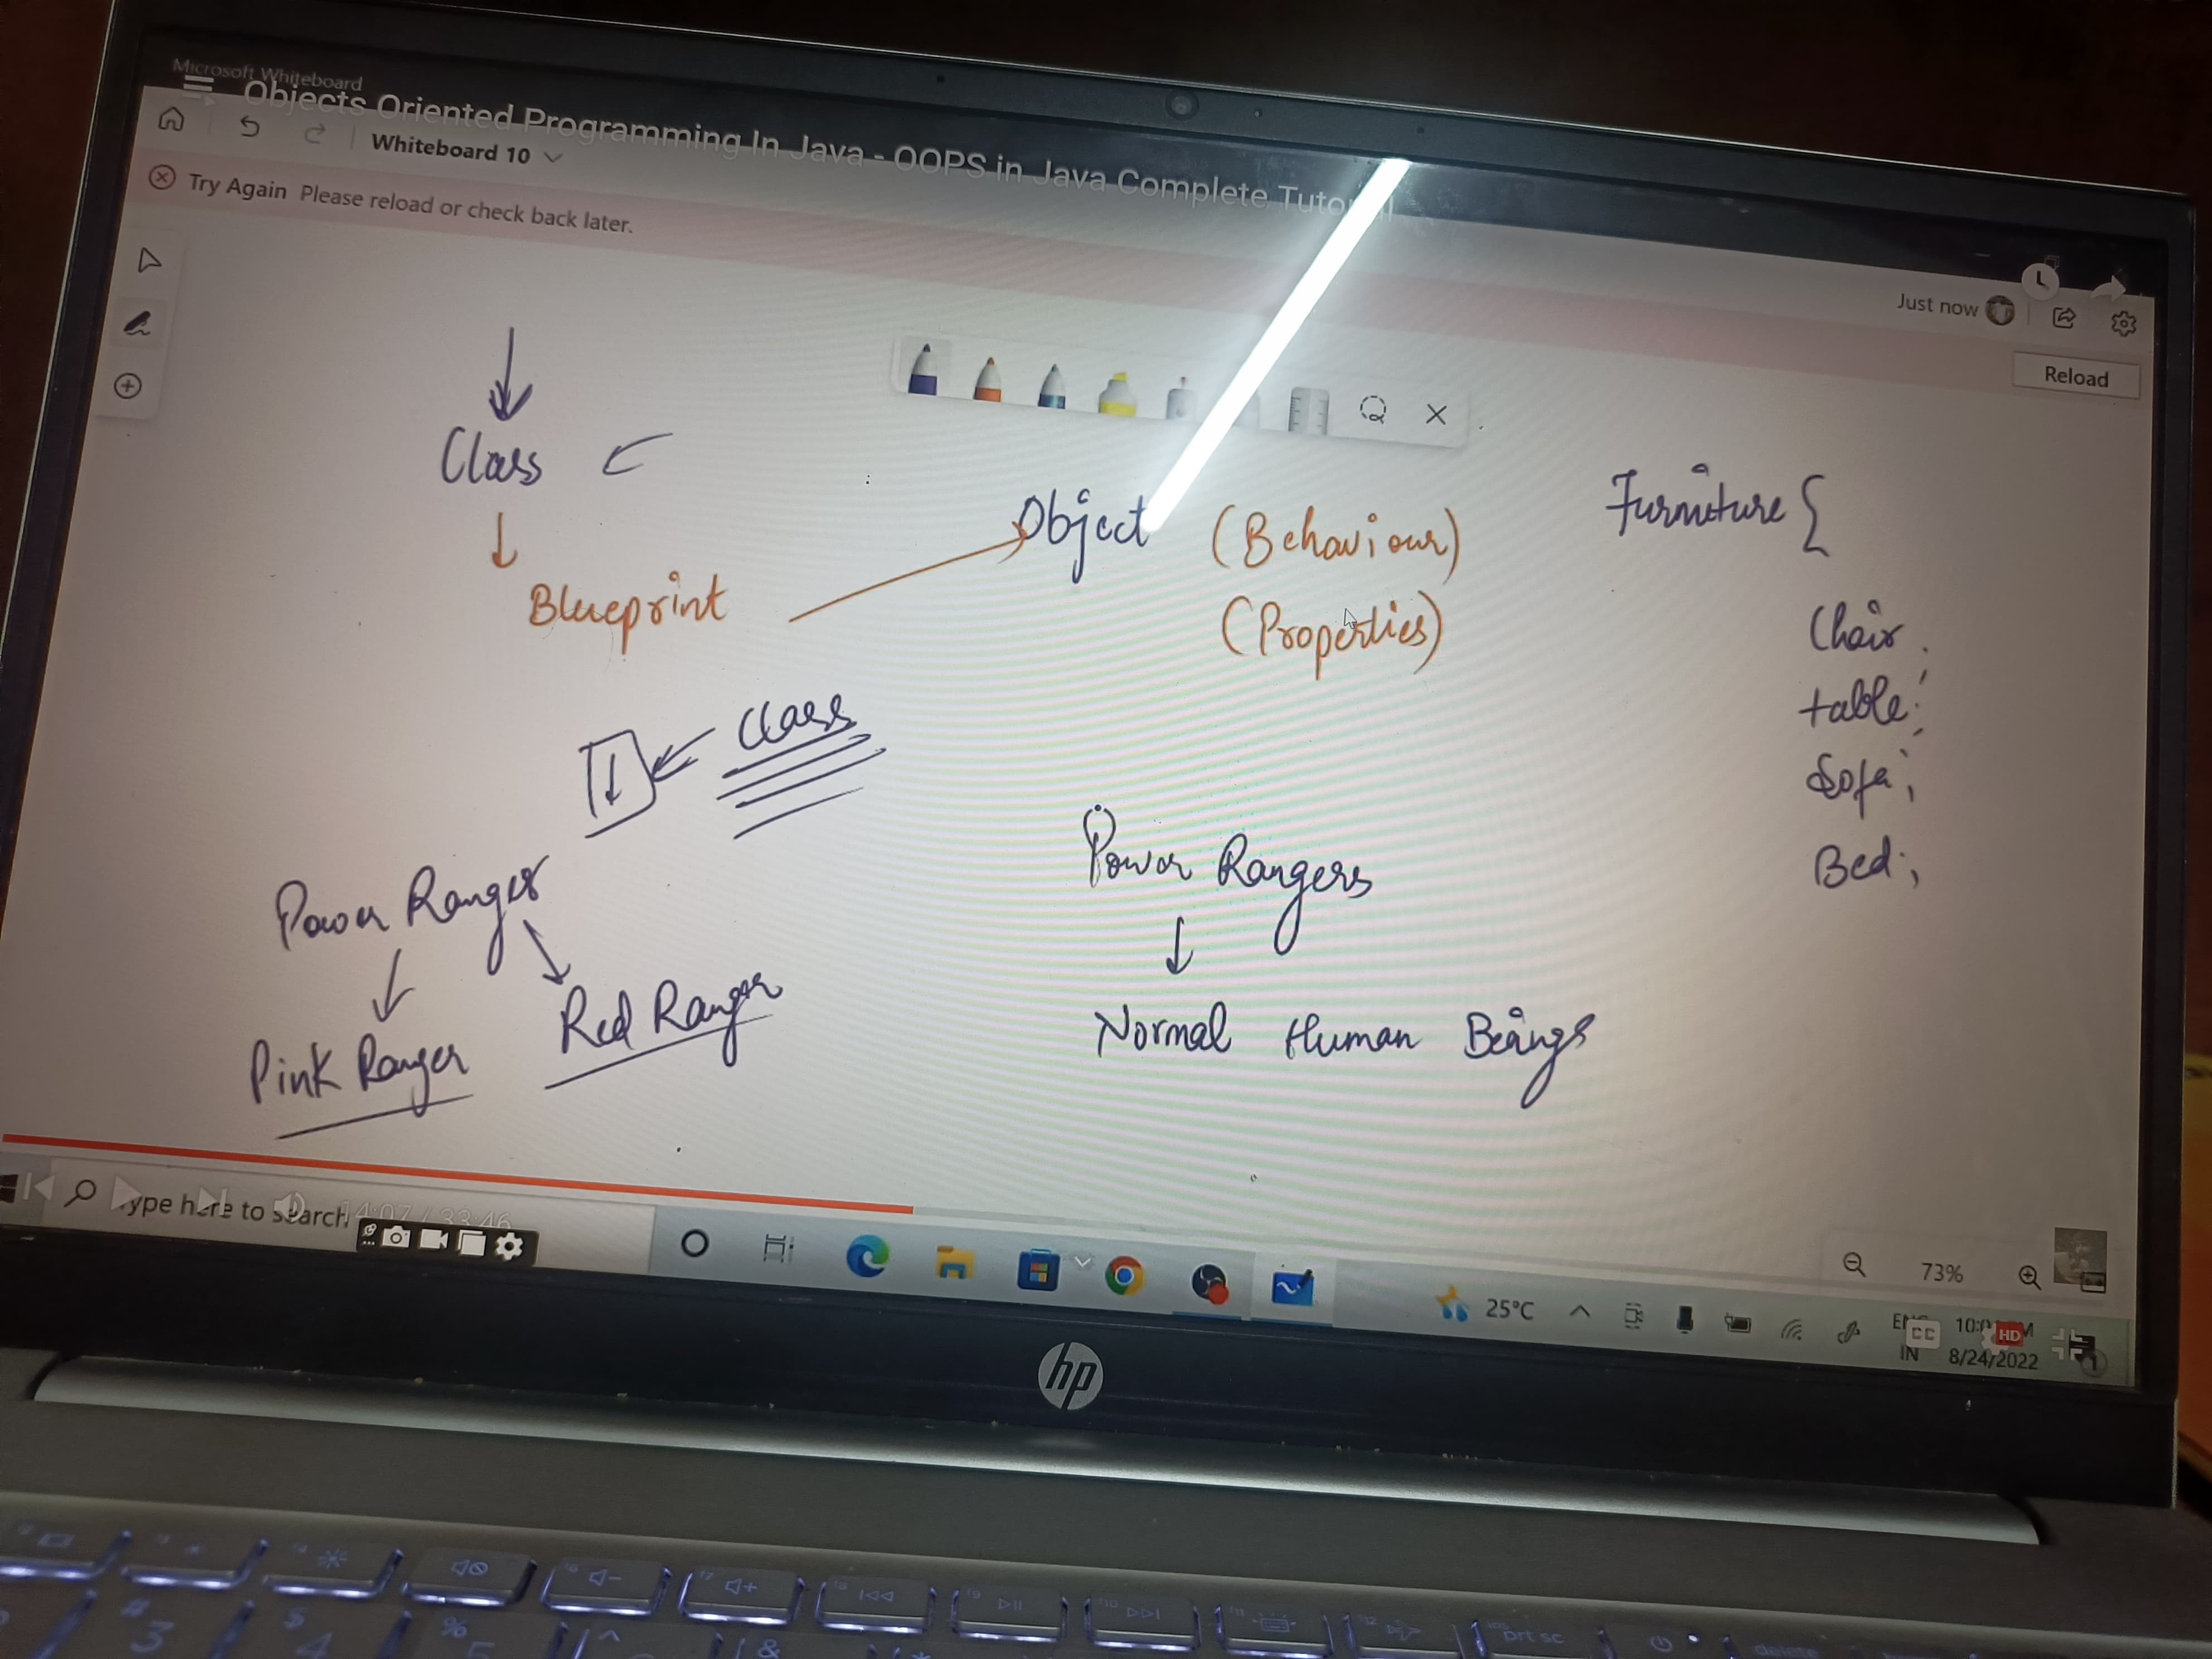 Microsoft Whiteboard
Objects Oriented Programming In Java - OOPS in Java Complete Tutorial
Whiteboard 10
Try Again Please reload or check back later.
Just now
Reload
Class
Blueprint
Object (Behaviour)
(Properties)
Furniture {
Chair
table;
Sofa;
Bed;
Class
Power Ranger
Pink Ranger
Red Ranger
Power Rangers
Normal Human Beings
14:07 / 33:46
ype here to search
73%
25°C
IN
CC
HD
8/24/2022
hp
# 3
$ 4
% 5
&
prt sc
delete